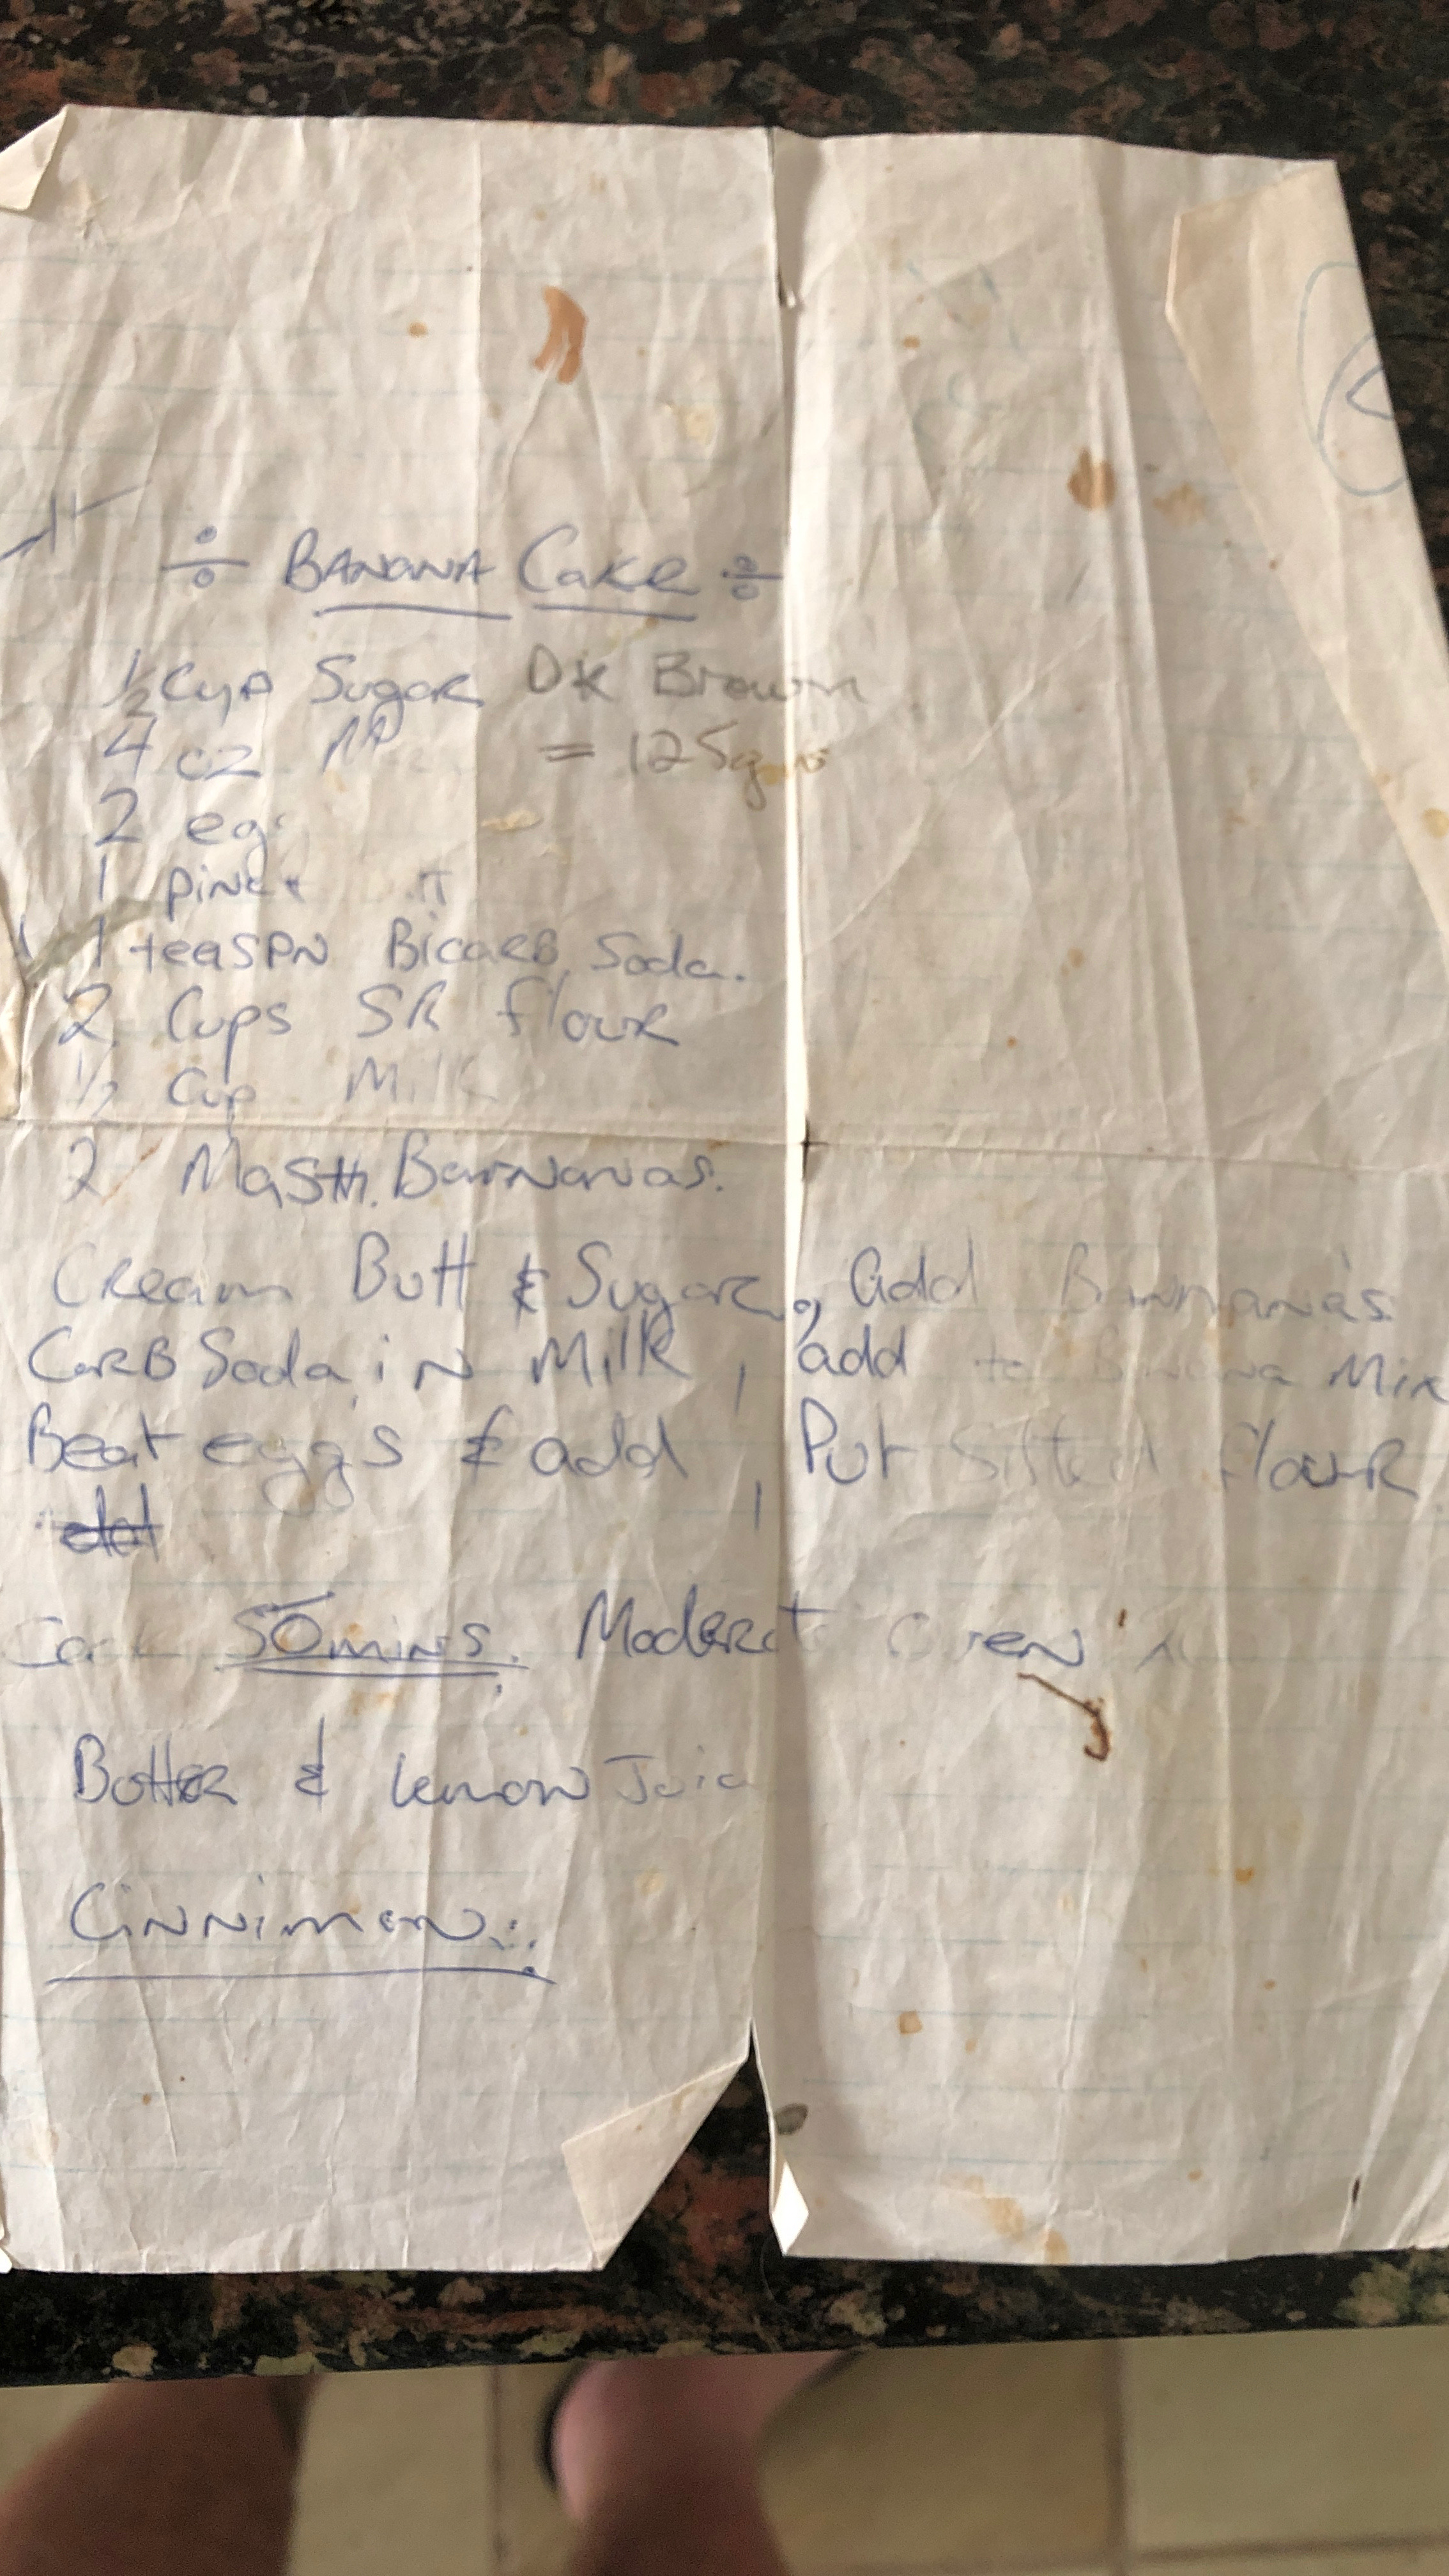 ÷ BANANA Cake ÷
½ Cup Sugar Dk Brown
4 oz = 125g
2
1
1 teaspn Bicarb Soda.
2 Cups SR flour
½ Cup Milk
2 Mash. Barnanas.
Cream Butt & Sugar, add
Carb Soda in Milk, add to Banana Mix
Beat eggs & add, Put Sifted flour
50 mins. Moderate Oven
Butter & Lemon
Cinnimon